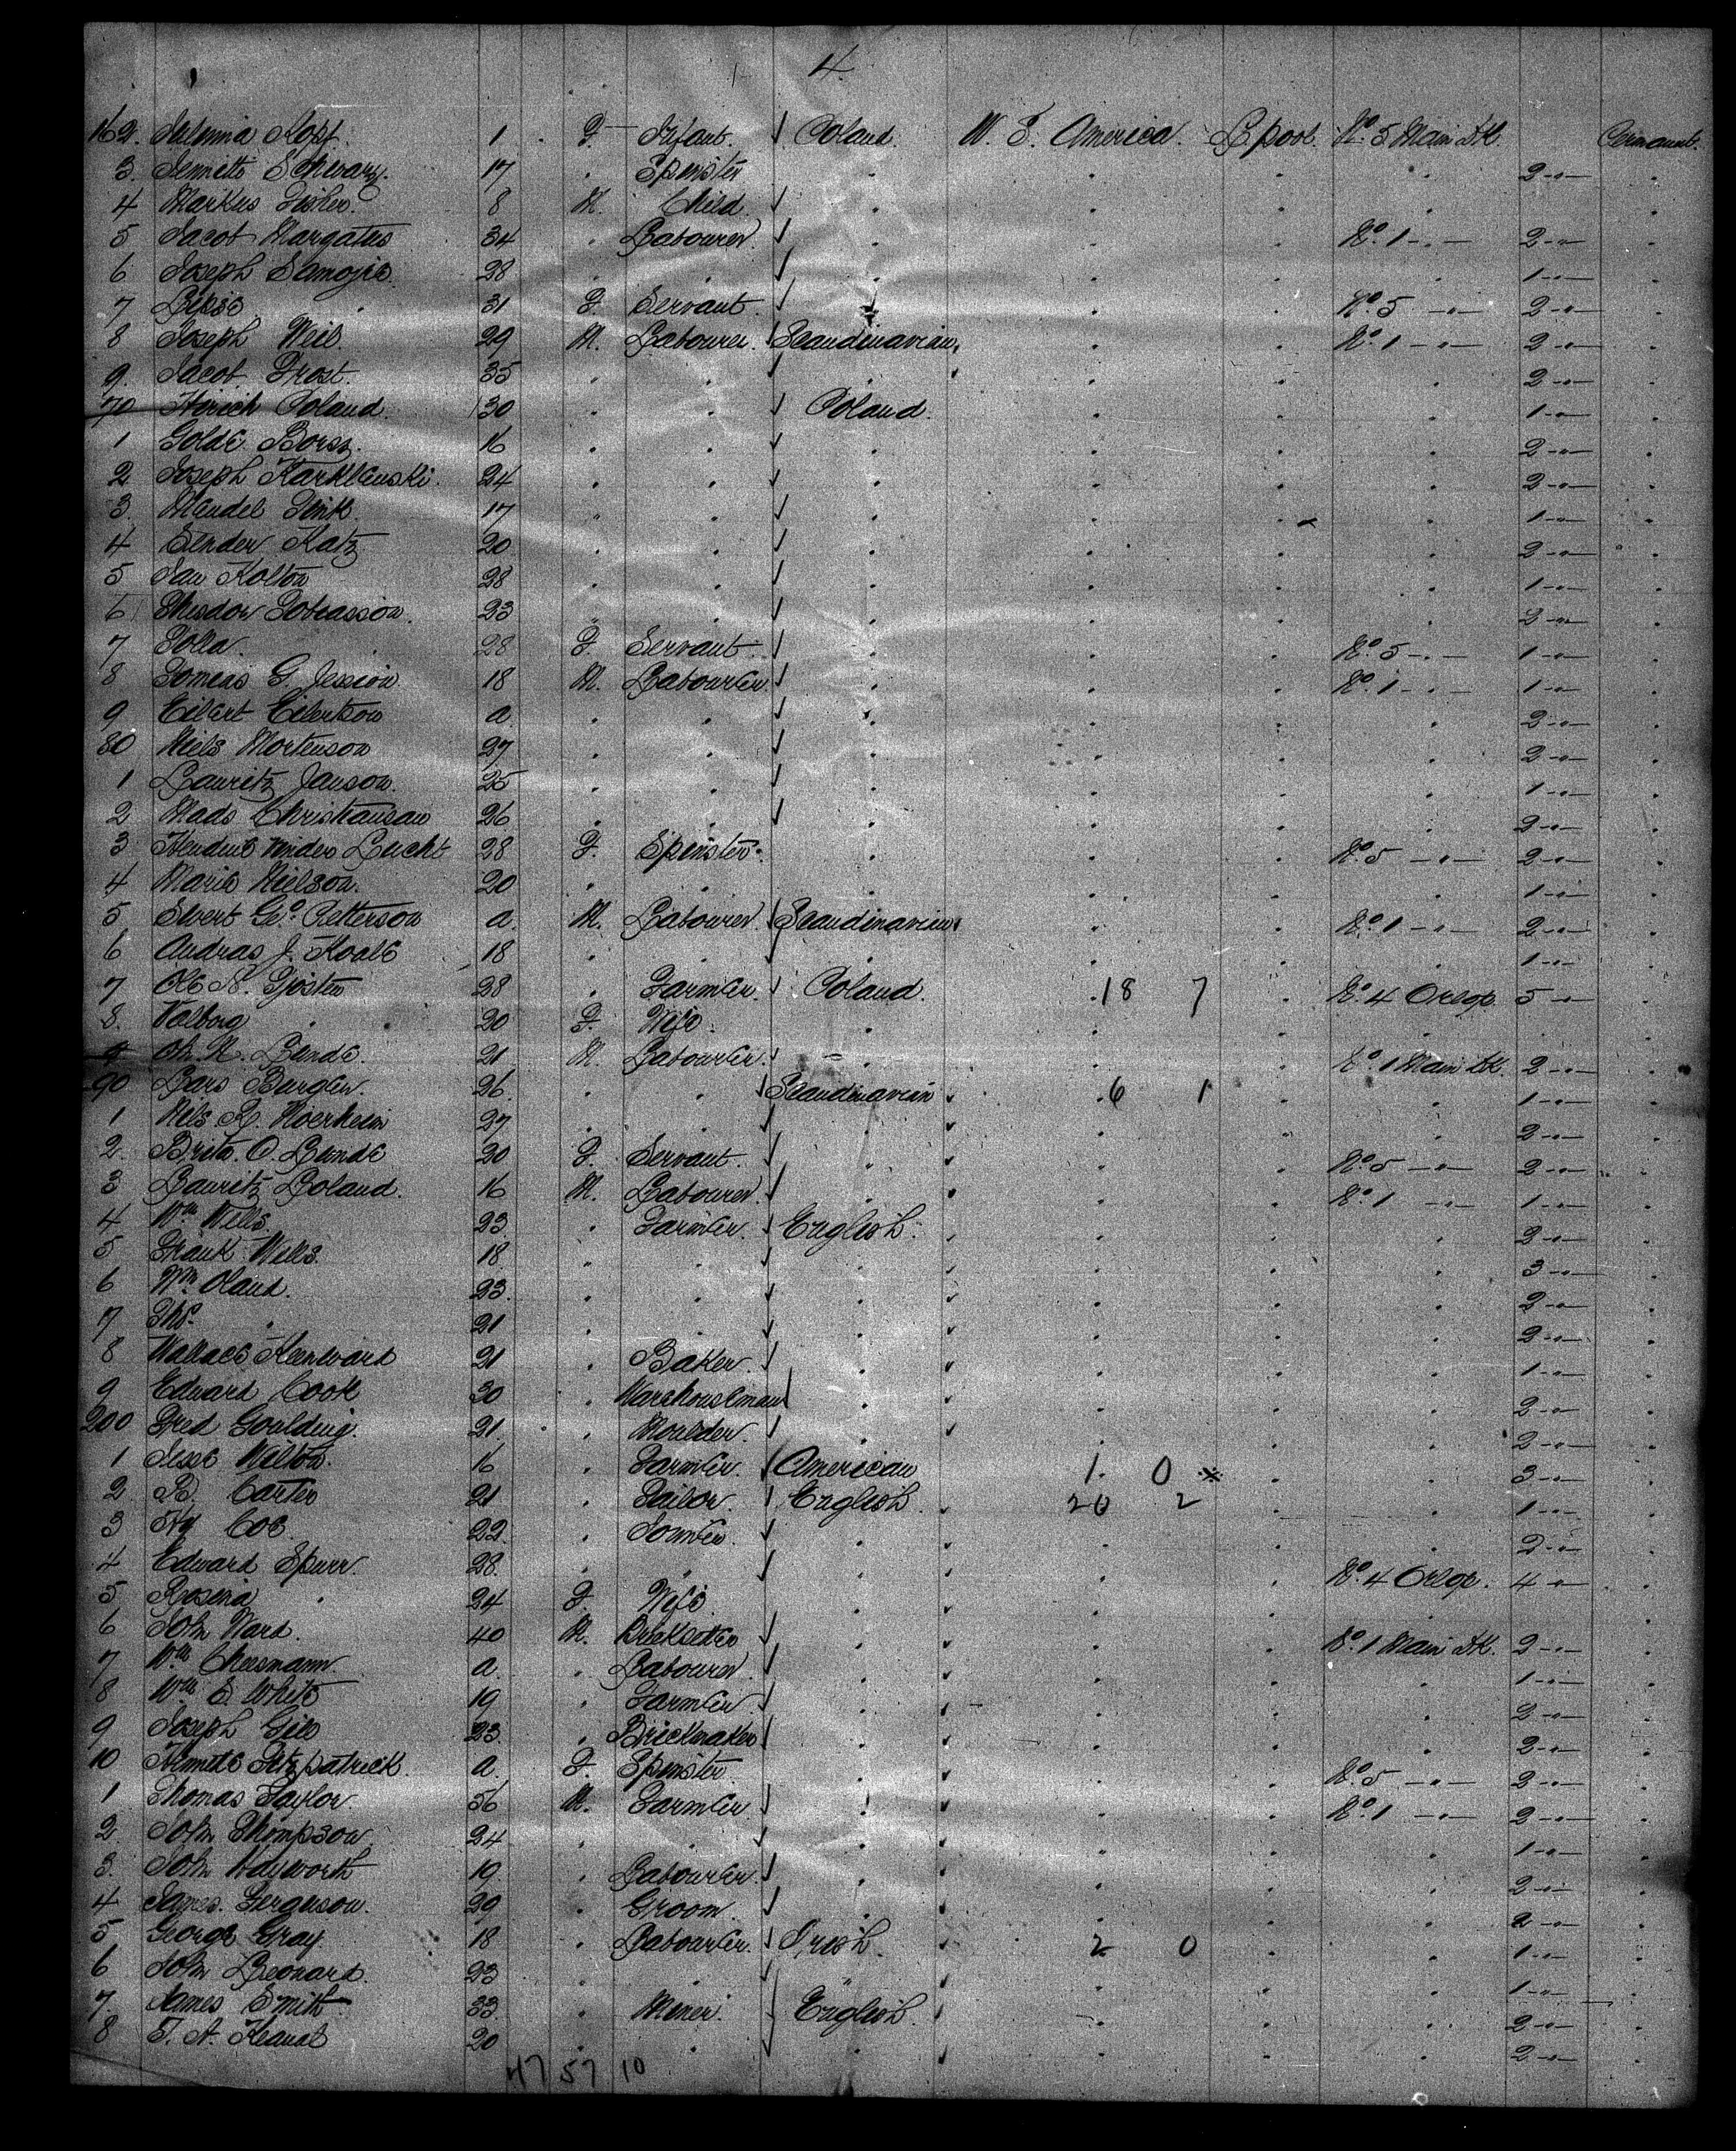 4
162 Kopf 1 F Infant Poland U. S. America L'pool No 5 Main Dk. Permanent
3 Jennette Schwarz 17 " Spinster " " " " 2 -"- "
4 Markus Fisher 8 M. Child " " " "
5 Jacob Margates 34 " Labourer " " " No 1 -"- 2 -"- "
6 Joseph Samojie 28 " " " " " " 1 -"- "
7 Lipse " 31 F. Servant " " " No 5 -"- 2 -"- "
8 Joseph Weil 29 M. Labourer Scandinavian " " No 1 -"- 2 -"- "
9 Jacob Frost 35 " " " " " " 2 -"- "
70 Hirich Poland 30 " " Poland " " " 1 -"- "
1 Golde Borsz 16 " " " " " " 2 -"- "
2 Joseph Karklenski 24 " " " " " " 2 -"- "
3 Mendel Fink 17 " " " " " " 1 -"- "
4 Sender Katz 20 " " " " " " 2 -"- "
5 Jan Kolton 28 " " " " " " 1 -"- "
6 Tobiasson 23 " " " " " " 2 -"- "
7 28 F. Servant " " " No 5 -"- 1 -"- "
8 G. Jession 18 M. Labourer " " " No 1 -"- 1 -"- "
9 Eilert Eilertson a " " " " " " 2 -"- "
80 Niels Mortenson 27 " " " " " " 2 -"- "
1 Lauritz Janson 25 " " " " " " 1 -"- "
2 Mads Christiansan 26 " " " " " " 2 -"- "
3 Lucht 28 F. Spinster " " " No 5 -"- 2 -"- "
4 Marie Nielson 20 " " " " " " 1 -"- "
5 Sivert Geo. Petterson a M. Labourer Scandinavian " " No 1 -"- 2 -"- "
6 Andras J. 18 " " " " " " 1 -"- "
7 Ole N. 28 " Farmer Poland 18 7 " No 4 Orlop 5 -"- "
8 Valborg " 20 F. Wife " " " " " "
9 Lende 21 M. Labourer " " " No 1 Main Dk 2 -"- "
90 Lars Burglen 26 " " Scandinavian 6 1 " " 1 -"- "
1 Nils 27 " " " " " " 2 -"- "
2 Brita O. Lende 20 F. Servant " " " No 5 -"- 2 -"- "
3 Lauritz Boland 16 M. Labourer " " " No 1 -"- 1 -"- "
4 Wm Wells 23 " Farmer English " " " 2 -"- "
5 Frank Wells 18 " " " " " " 3 -"- "
6 Wm Oland 23 " " " " " " 2 -"- "
7 Thos " 21 " " " " " " 2 -"- "
8 Wallace Kenward 21 " Baker " " " " 1 -"- "
9 Edward Cook 30 " Warehouseman " " " " 2 -"- "
200 Fred Goulding 21 " Moulder " " " " 2 -"- "
1 Jesse Wilton 16 " Farmer American 1 0 * " " 3 -"- "
2 R. Carter 21 " Tailor English 20 2 " " 1 -"- "
3 Hy Coe 22 " " " " " 2 -"- "
4 Edward Spurr 28 " " " " " No 4 Orlop 4 -"- "
5 Rosina " 24 F. Wife " " " " " "
6 John Ward 40 M. Bricksetter " " " No 1 Main Dk. 2 -"- "
7 Wm Cheesmann a " Labourer " " " " 1 -"- "
8 Wm E. White 19 " Farmer " " " " 2 -"- "
9 Joseph Gill 23 " Brickmaker " " " " 2 -"- "
10 Fitzpatrick a F. Spinster " " " No 5 -"- 2 -"- "
1 Thomas Taylor 56 M. Farmer " " " No 1 -"- 2 -"- "
2 John Thompson 24 " " " " " " 1 -"- "
3 John Hayworth 19 " Labourer " " " " 2 -"- "
4 James Ferguson 29 " Groom " " " " 2 -"- "
5 George Gray 18 " Labourer Irish 2 0 " " 1 -"- "
6 John Leonard 23 " " " " " " 1 -"- "
7 James Smith 33 " Miner English " " " 2 -"- "
8 20 " " " " " " 2 -"- "
47 57 10